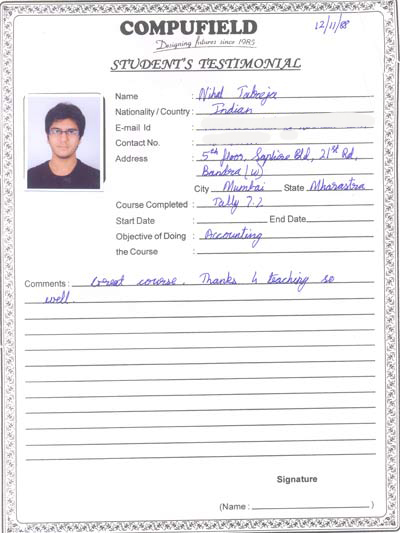 COMPUFIELD
Designing futures since 1985
12/11/08
STUDENT'S TESTIMONIAL
Name : Nihal Tabreja
Nationality / Country : Indian
E-mail Id :
Contact No. :
Address : 5th floor, Saphire Bld, 21st Rd,
Bandra (W)
City Mumbai State Mharastra
Course Completed : Tally 7.2
Start Date : End Date
Objective of Doing : Accounting
the Course :
Comments : Great course. Thanks 4 teaching so
well.
Signature
(Name : )